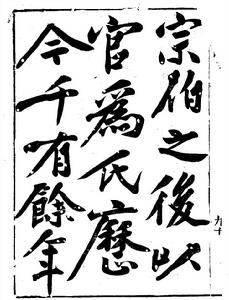 宗伯之後以
官爲氏歷
今千有餘年
九十